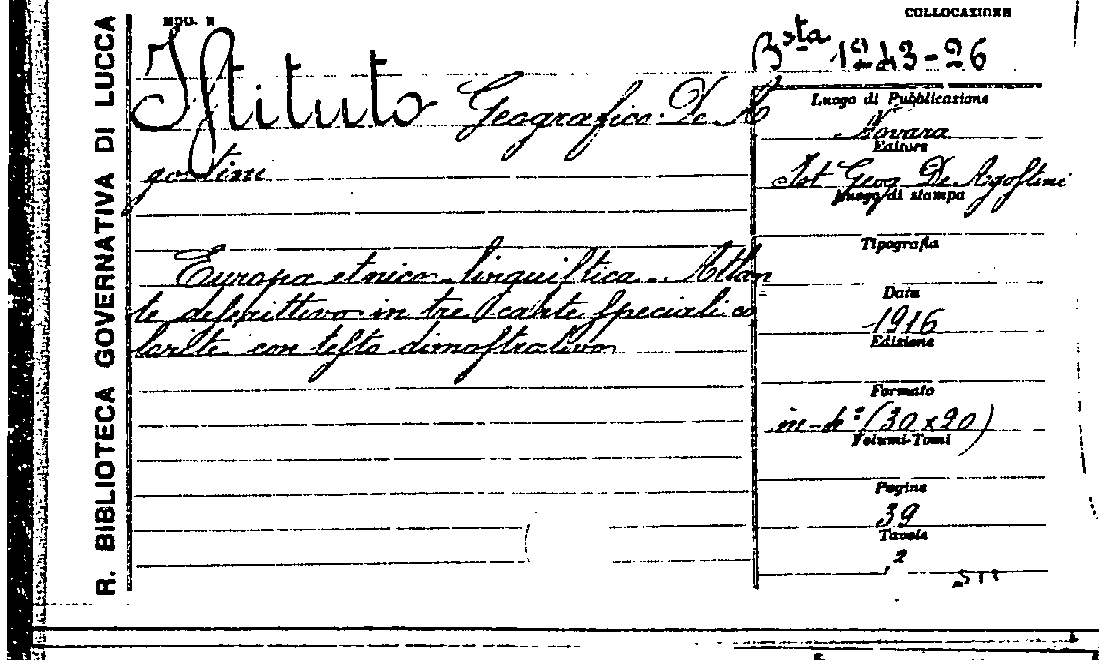 R. BIBLIOTECA GOVERNATIVA DI LUCCA
MOD. E
COLLOCAZIONE
Bsta 1243-26
Istituto Geografico De A
gostini
Europa etnico linguistica. Atlan
te descrittivo in tre carte speciali co
lorite con testo dimostrativo
Luogo di Pubblicazione
Novara
Editore
Ist Geog De Agostini
Luogo di stampa
Tipografia
Data
1916
Edizione
Formato
in-4º (30x20)
Volumi-Tomi
Pagine
39
Tavole
2